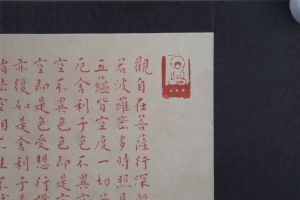 觀自在菩薩行深般
若波羅密多時照見
五蘊皆空度一切
厄舍利子色不異空
空不異色色即是空
空即是色受想行識
亦復如是舍利子
法空相不生不